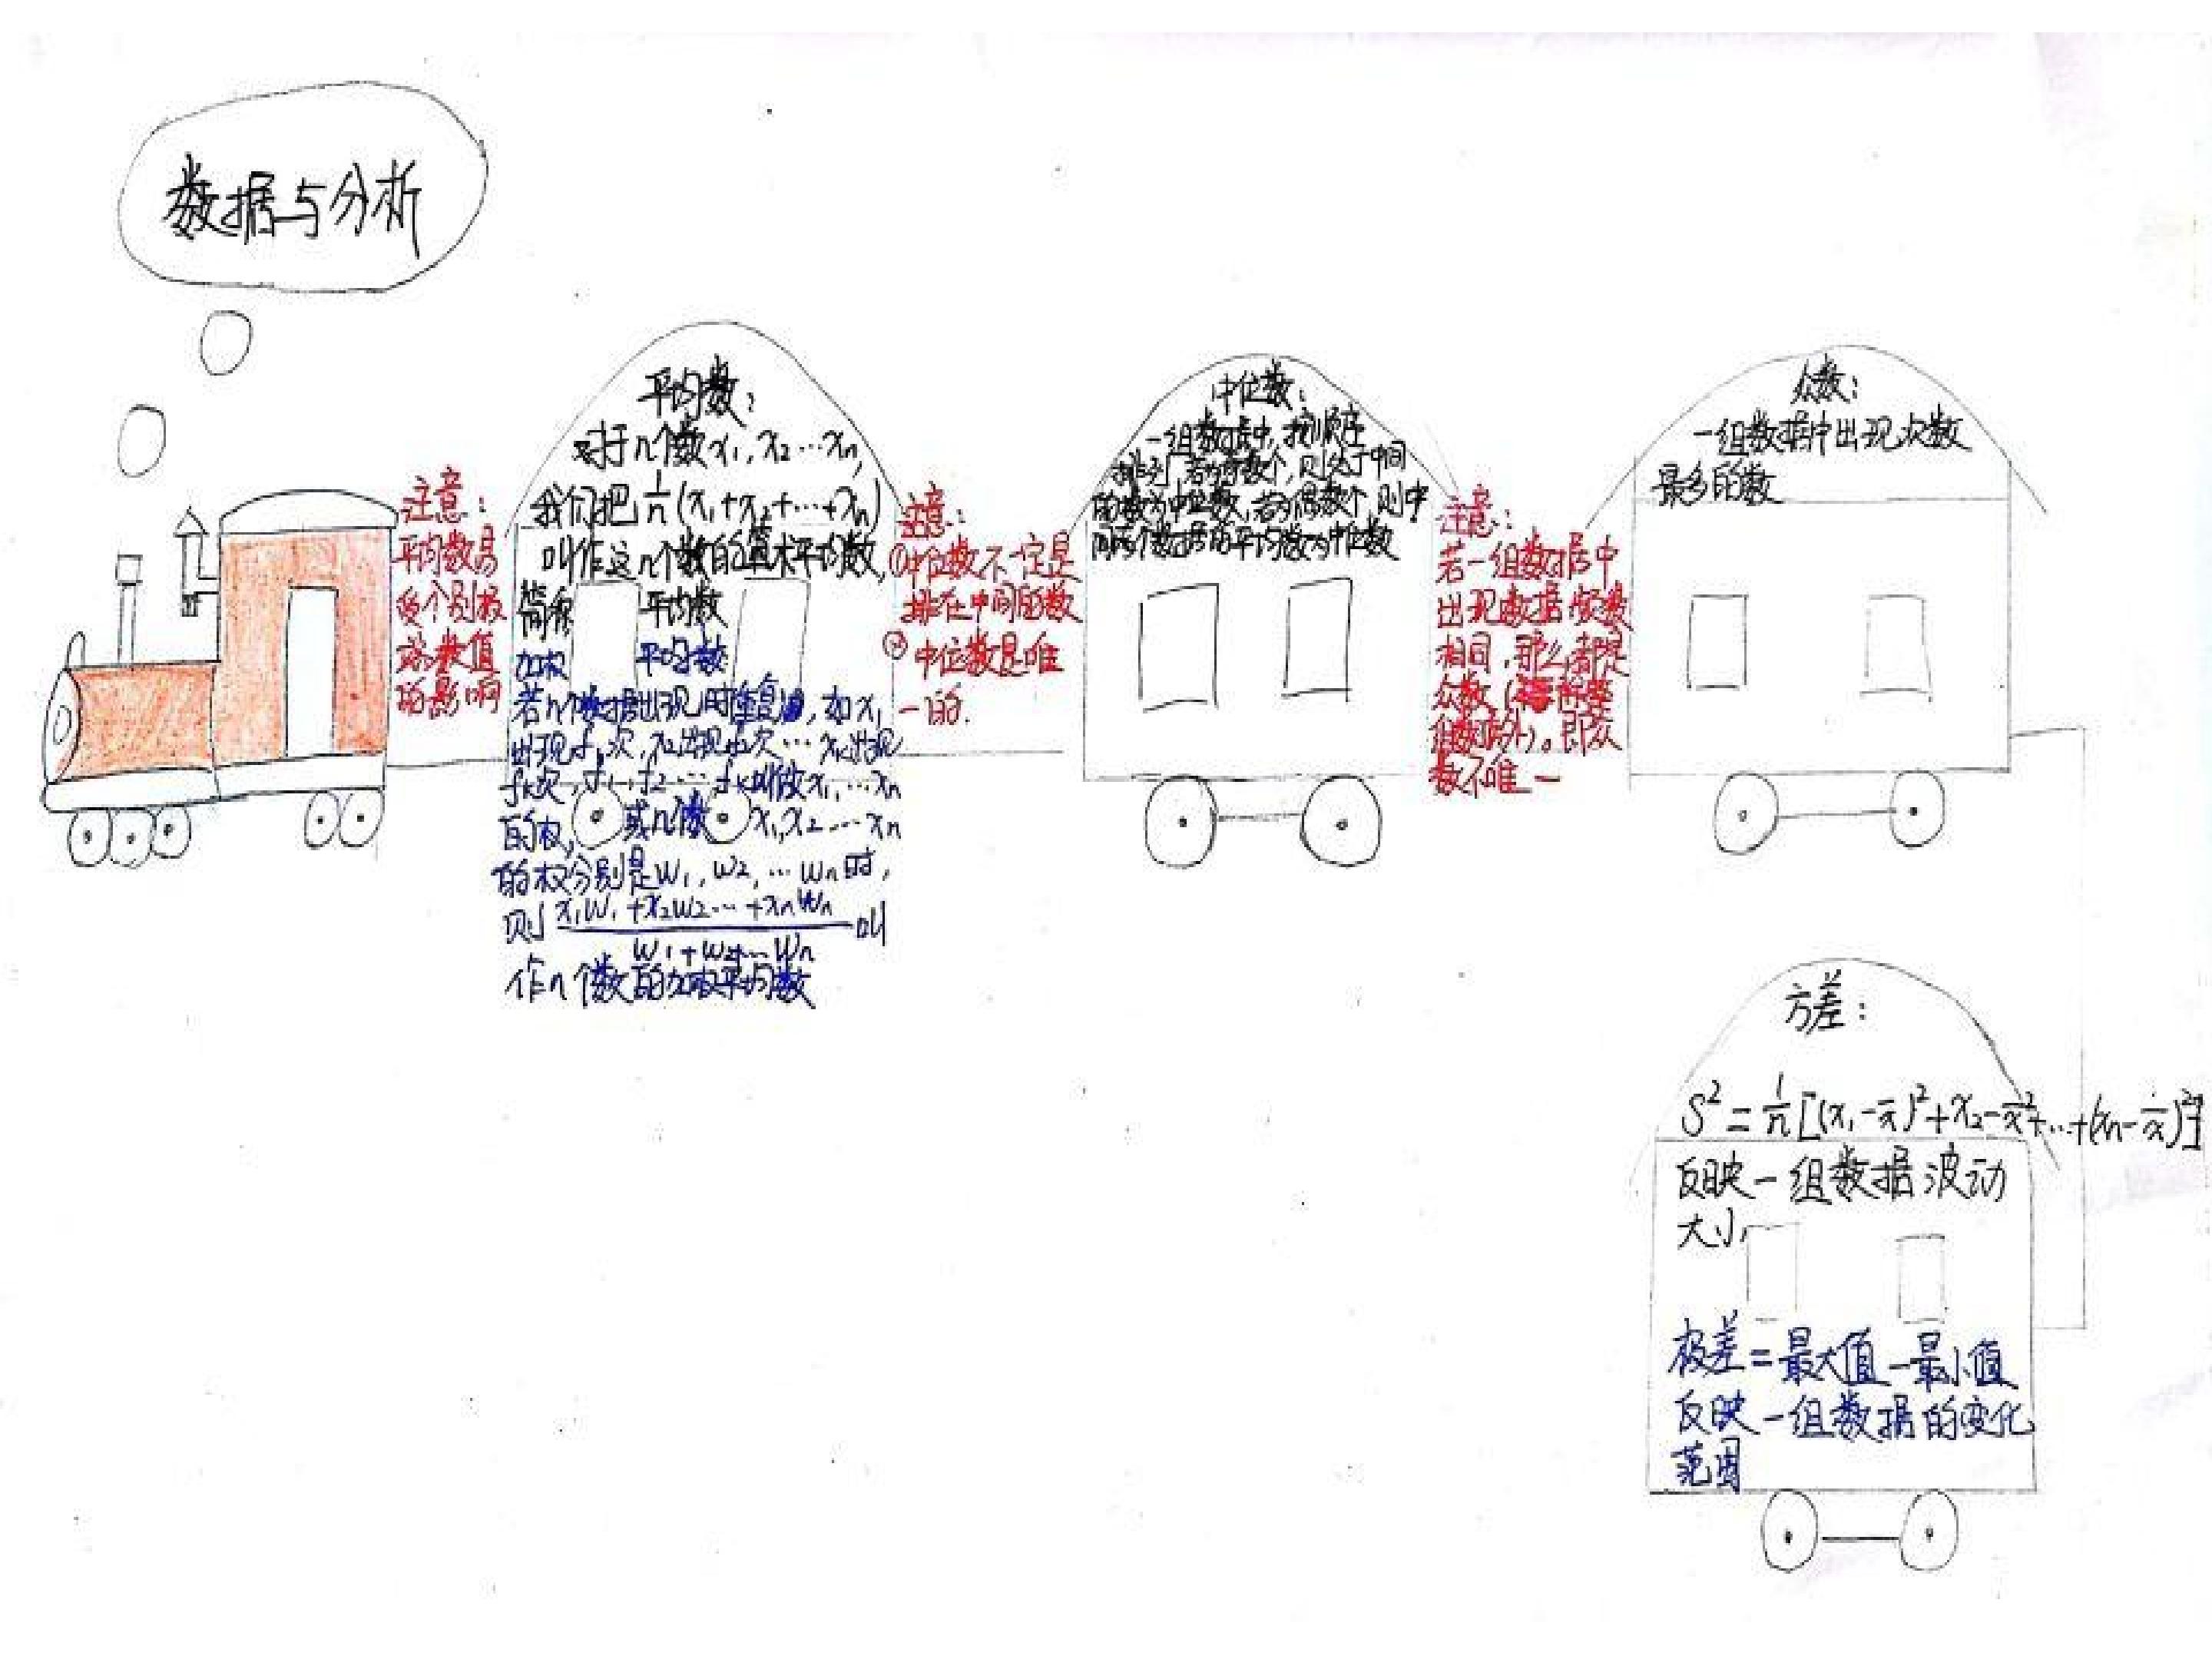 数据与分析
注意：
平均数易
受个别极
端数值
的影响
平均数：
对于n个数x₁,x₂…xₙ,
我们把1/n(x₁+x₂+…+xₙ)
叫作这n个数的算术平均数,
简称 平均数
加权 平均数
若n个数据出现时重复，如x₁
出现f₁次,x₂出现f₂次…xₖ出现
fₖ次,f₁,f₂…fₖ叫做x₁,…xₙ
的权, 或n个数x₁,x₂…xₙ
的权分别是w₁,w₂,…wₙ时,
则(x₁w₁+x₂w₂…+xₙwₙ)/(w₁+w₂+…wₙ)叫
作n个数的加权平均数
注意：
①中位数不一定是
排在中间的数
② 中位数是唯
一的.
中位数：
一组数据中,按顺序
排列,若为奇数个,则处于中间
的数为中位数,若为偶数个,则中
间两个数据的平均数为中位数
注意：
若一组数据中
出现数据频数
相同,那么都是
众数,(
组数除外)。即众
数不唯一
众数：
一组数据中出现次数
最多的数
方差：
S²=1/n[(x₁-x̄)²+x₂-x̄²+…+(xₙ-x̄)²]
反映一组数据波动
大小
极差=最大值-最小值
反映一组数据的变化
范围